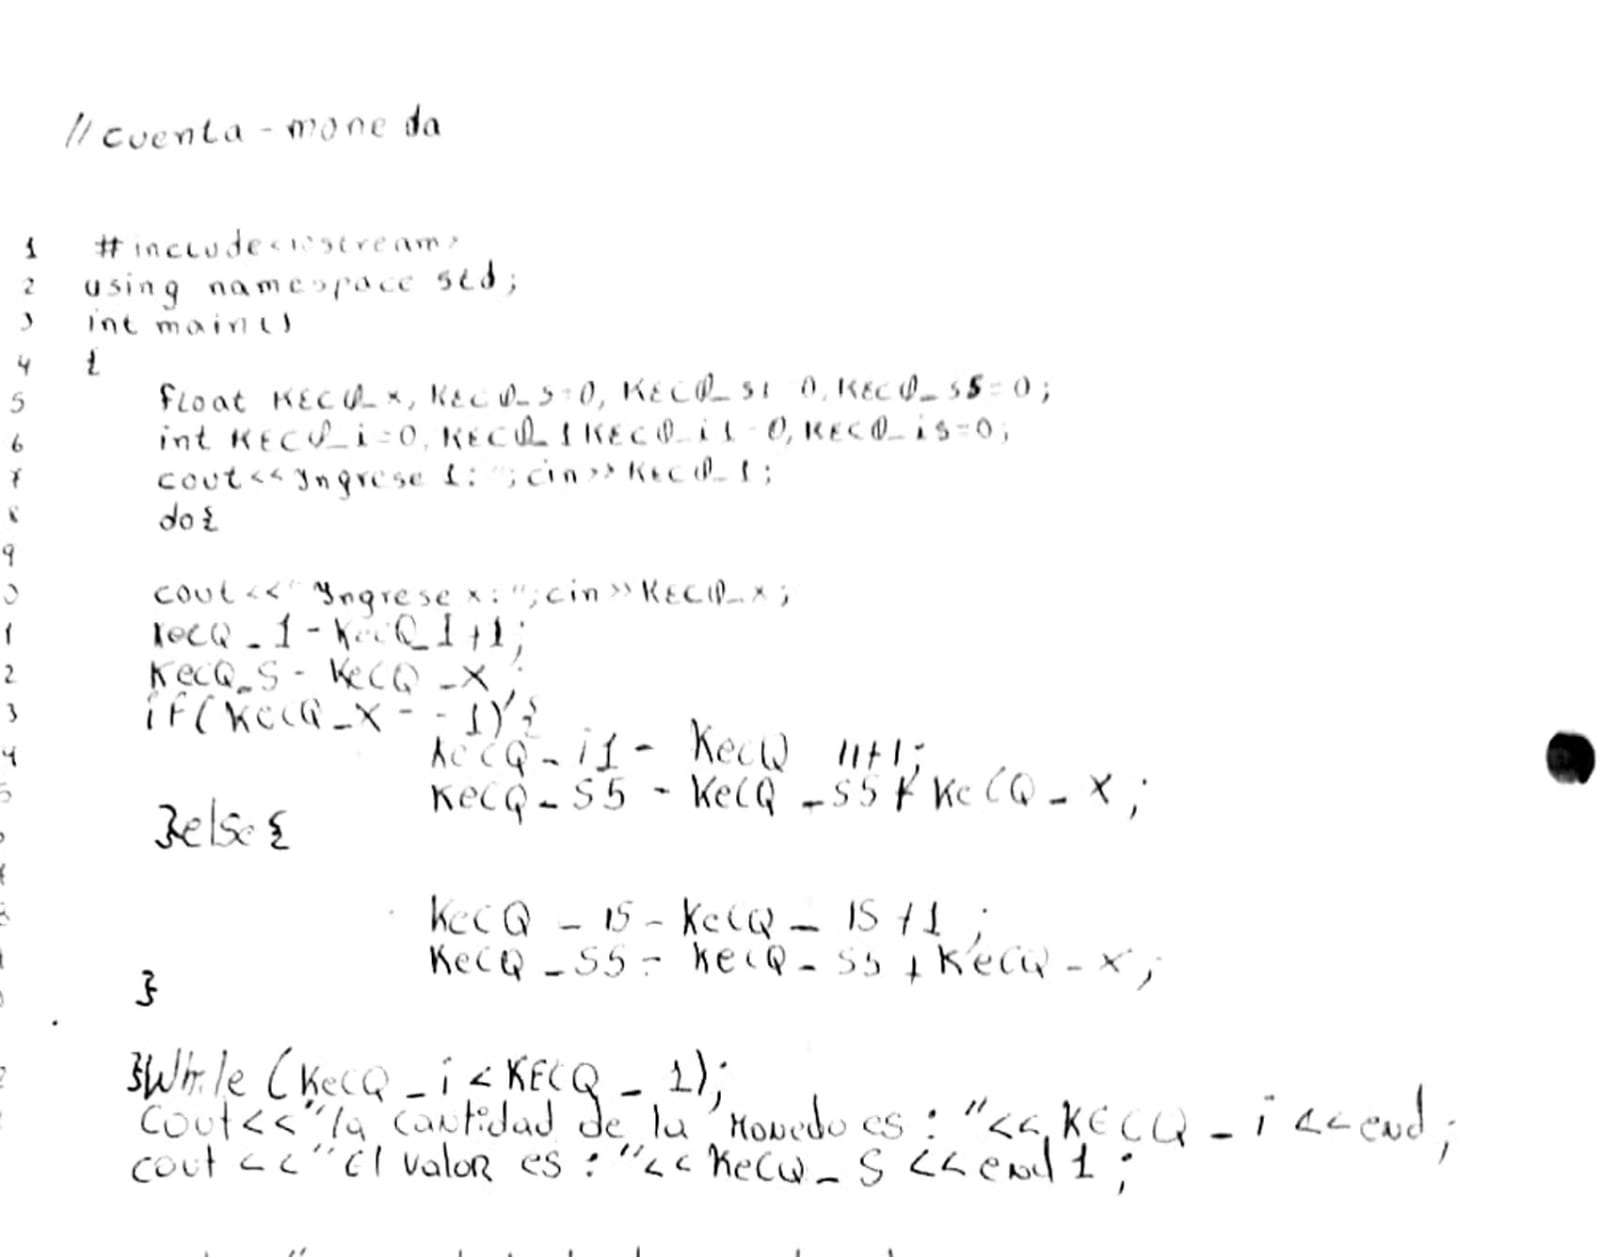 // cuenta - moneda
1 #include<iostream>
2 using namespace std;
3 int main()
4 {
5 float KECQ_x, KECQ_s=0, KECQ_s1=0, KECQ_s5=0;
6 int KECQ_i=0, KECQ_1 KECQ_i1=0, KECQ_i5=0;
7 cout<<"Ingrese 1: ";cin>>KECQ_1;
8 do{
9
0 cout<<"Ingrese x:";cin>>KECQ_x;
1 KecQ_1-KecQ_1+1;
2 KecQ_S - KecQ_X;
3 if(KecQ_X--1){
4 KecQ_i1- KecQ 11+1;
5 KecQ_S5 - KecQ_S5+KecQ_X;
}else{
KecQ_15-KecQ_15+1;
KecQ_S5= KecQ_S5+KecQ_x;
}
}While (KecQ_i<KECQ_1);
Cout<<"la cantidad de la moneda es: "<<KECQ_i<<end;
cout<<"El valor es:"<<KecQ_S<<end1;